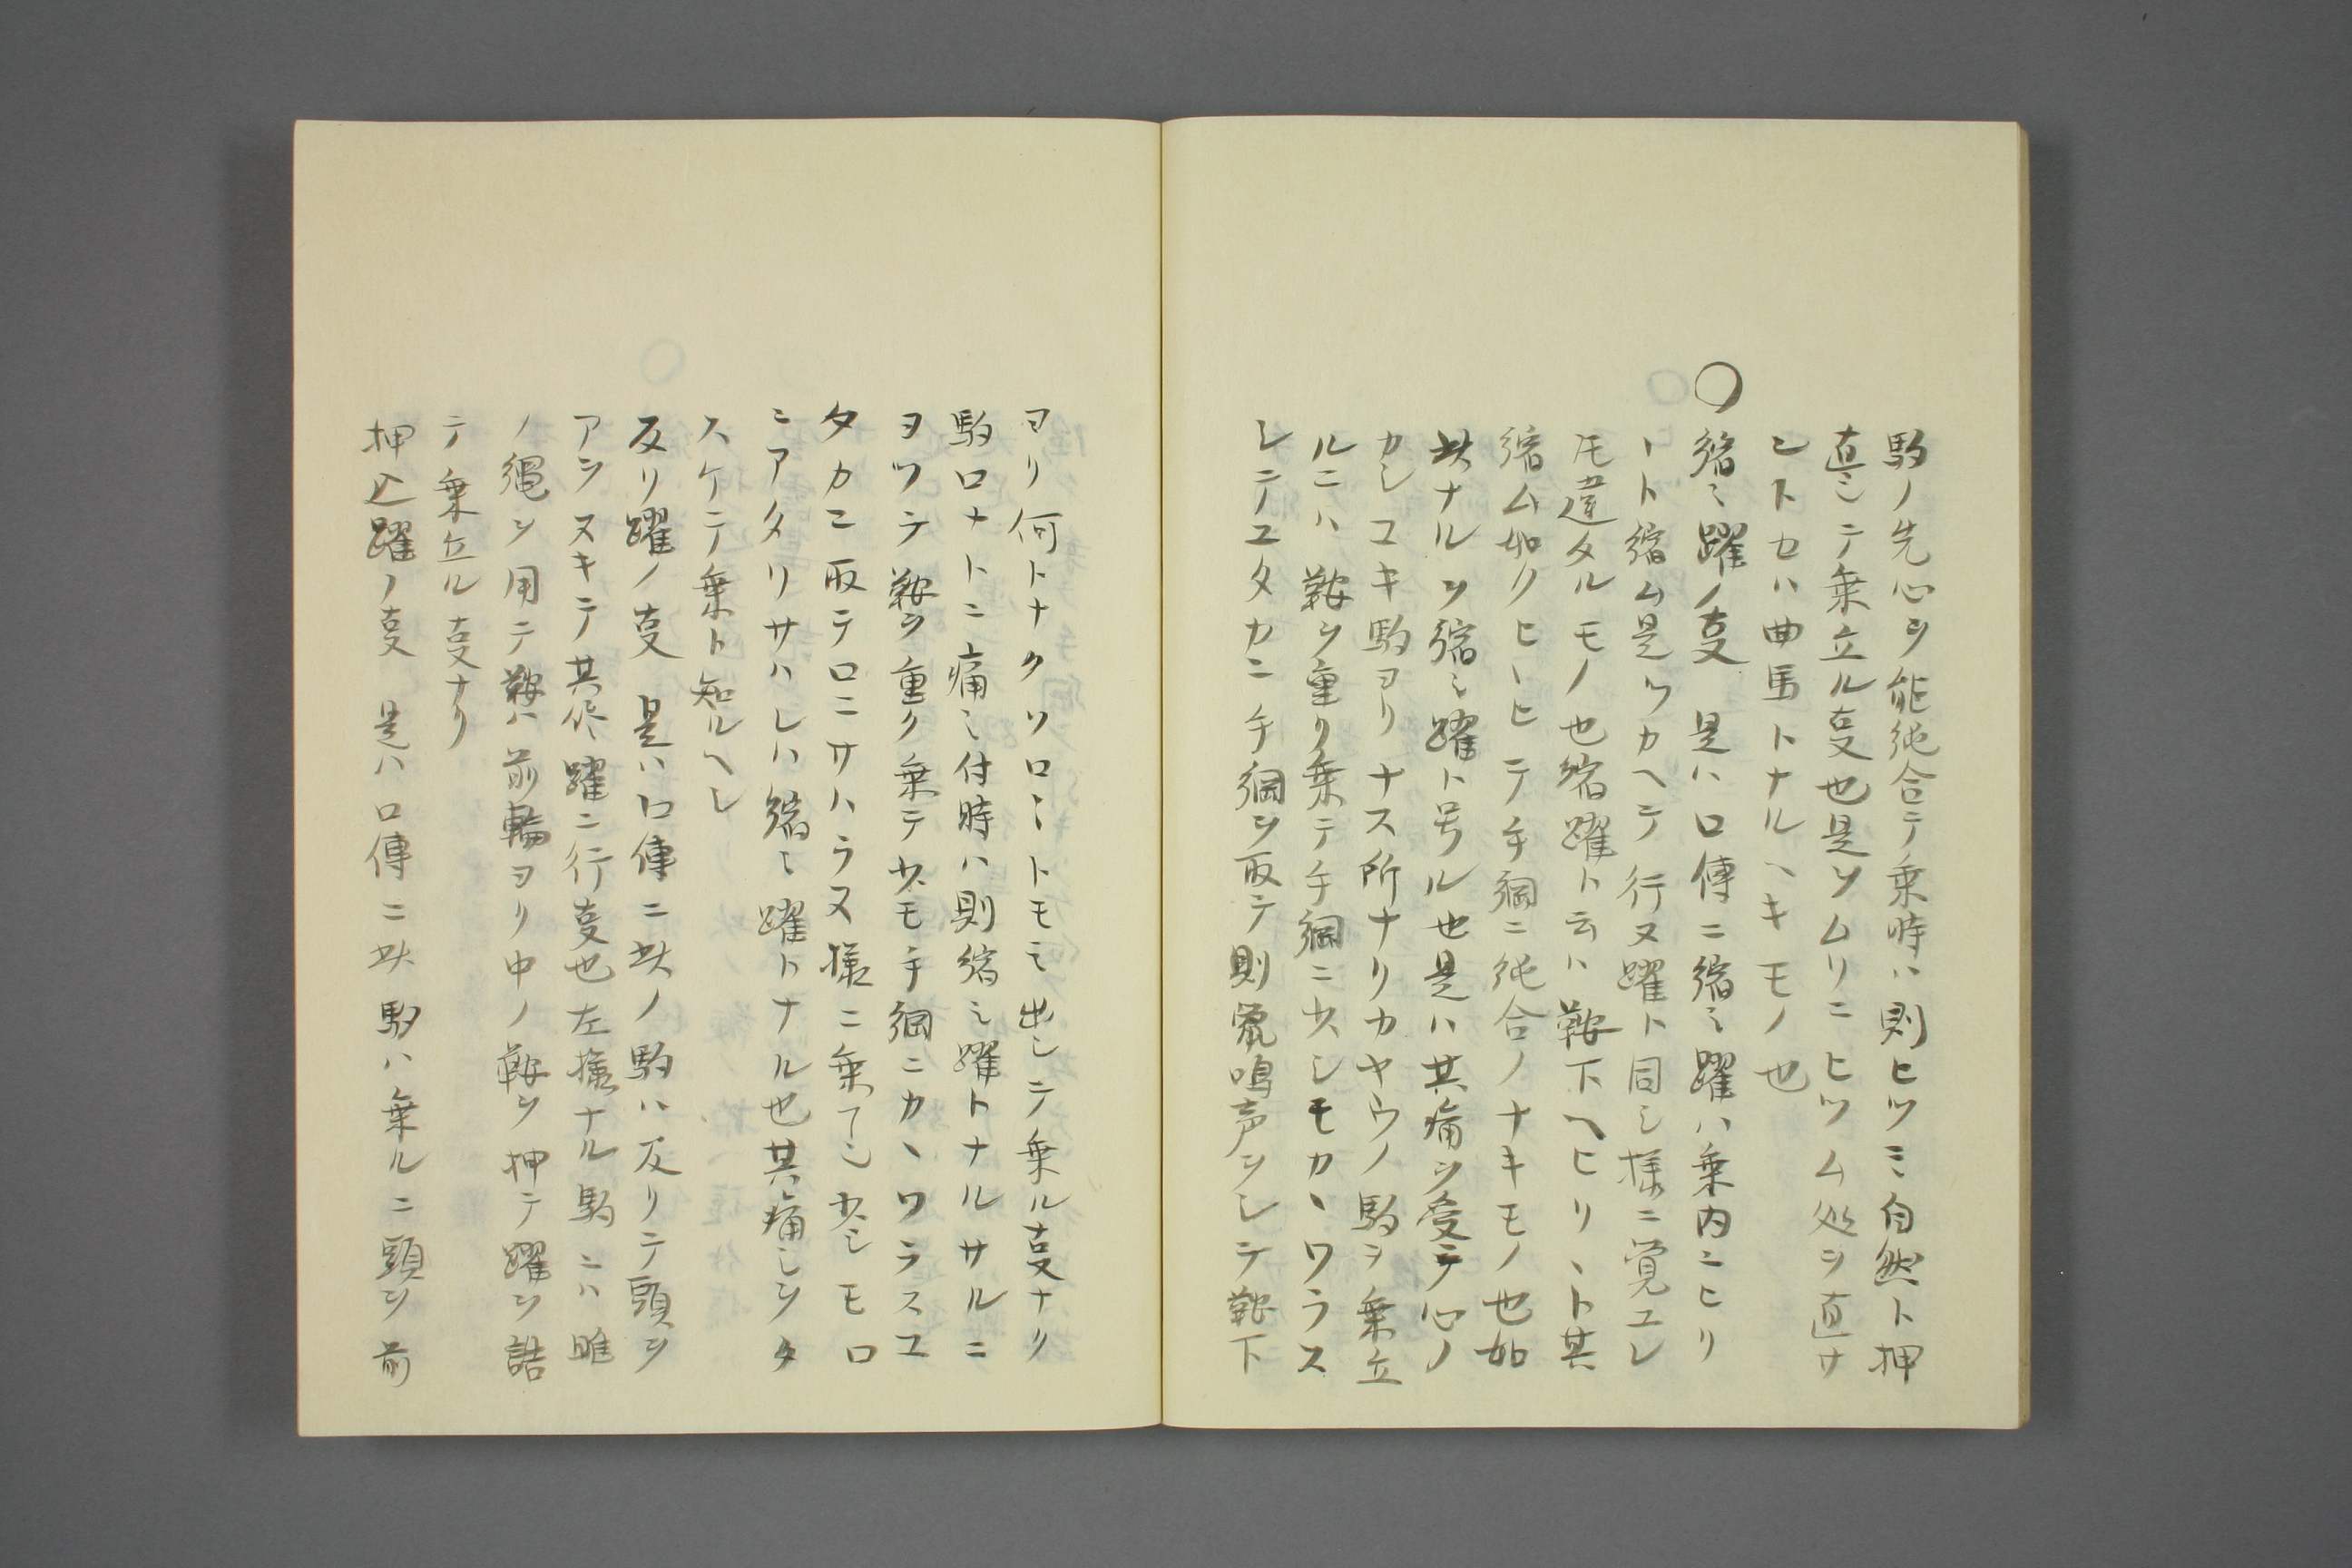 駒ノ先心ヲ能純合テ乗時ハ則ヒツミ自然ト押
直シテ乗立ル叓也是ヲムリニヒツム処ヲ直サ
ントセハ曲馬トナルヘキモノ也
〇縮ミ躍ノ叓　是ハ口傳ニ縮ミ躍ハ乗内ニヒリ
ヽト縮ム是ツカヘテ行又躍ト同シ様ニ覚エレ
𪜈違タルモノ也縮躍ト云ハ鞍下ヘヒリヽト其
縮ム如クヒヽヒテ手綱ニ純合ノナキモノ也如
此ナルヲ縮ミ躍ト号ル也是ハ其痛ヲ受テ心ノ
カシコキ駒ヨリナス所ナリカヤウノ駒ヲ乗立
ルニハ鞍ヲ重リ乗テ手綱ニ少シモカヽワラス
シテユタカニ手綱ヲ取テ則鼠鳴声ヲシテ鞍下
ヨリ何トナクソロミトモミ出シテ乗ル叓ナリ
駒口ナトニ痛ミ付時ハ則縮ミ躍トナルサルニ
ヨツテ鞍ヲ重ク乗テ少モ手綱ニカヽワラスユ
タカニ取テロニサハラヌ様ニ乗テシ少シモロ
ニアタリサハレハ縮ミ躍トナル也其痛シヲタ
スケテ乗ト知ルヘシ
反リ躍ノ叓　是ハ口傳ニ此ノ駒ハ反リテ頭ヲ
アヲヌキテ其侭躍ニ行叓也左様ナル駒ニハ雎
ノ縄ヲ用テ鞍ハ前輪ヨリ中ノ鞍ヲ押テ躍ヲ詰
テ乗立ル叓ナリ
押込躍ノ叓　是ハ口傳ニ此駒ハ乗ルニ頭ヲ前